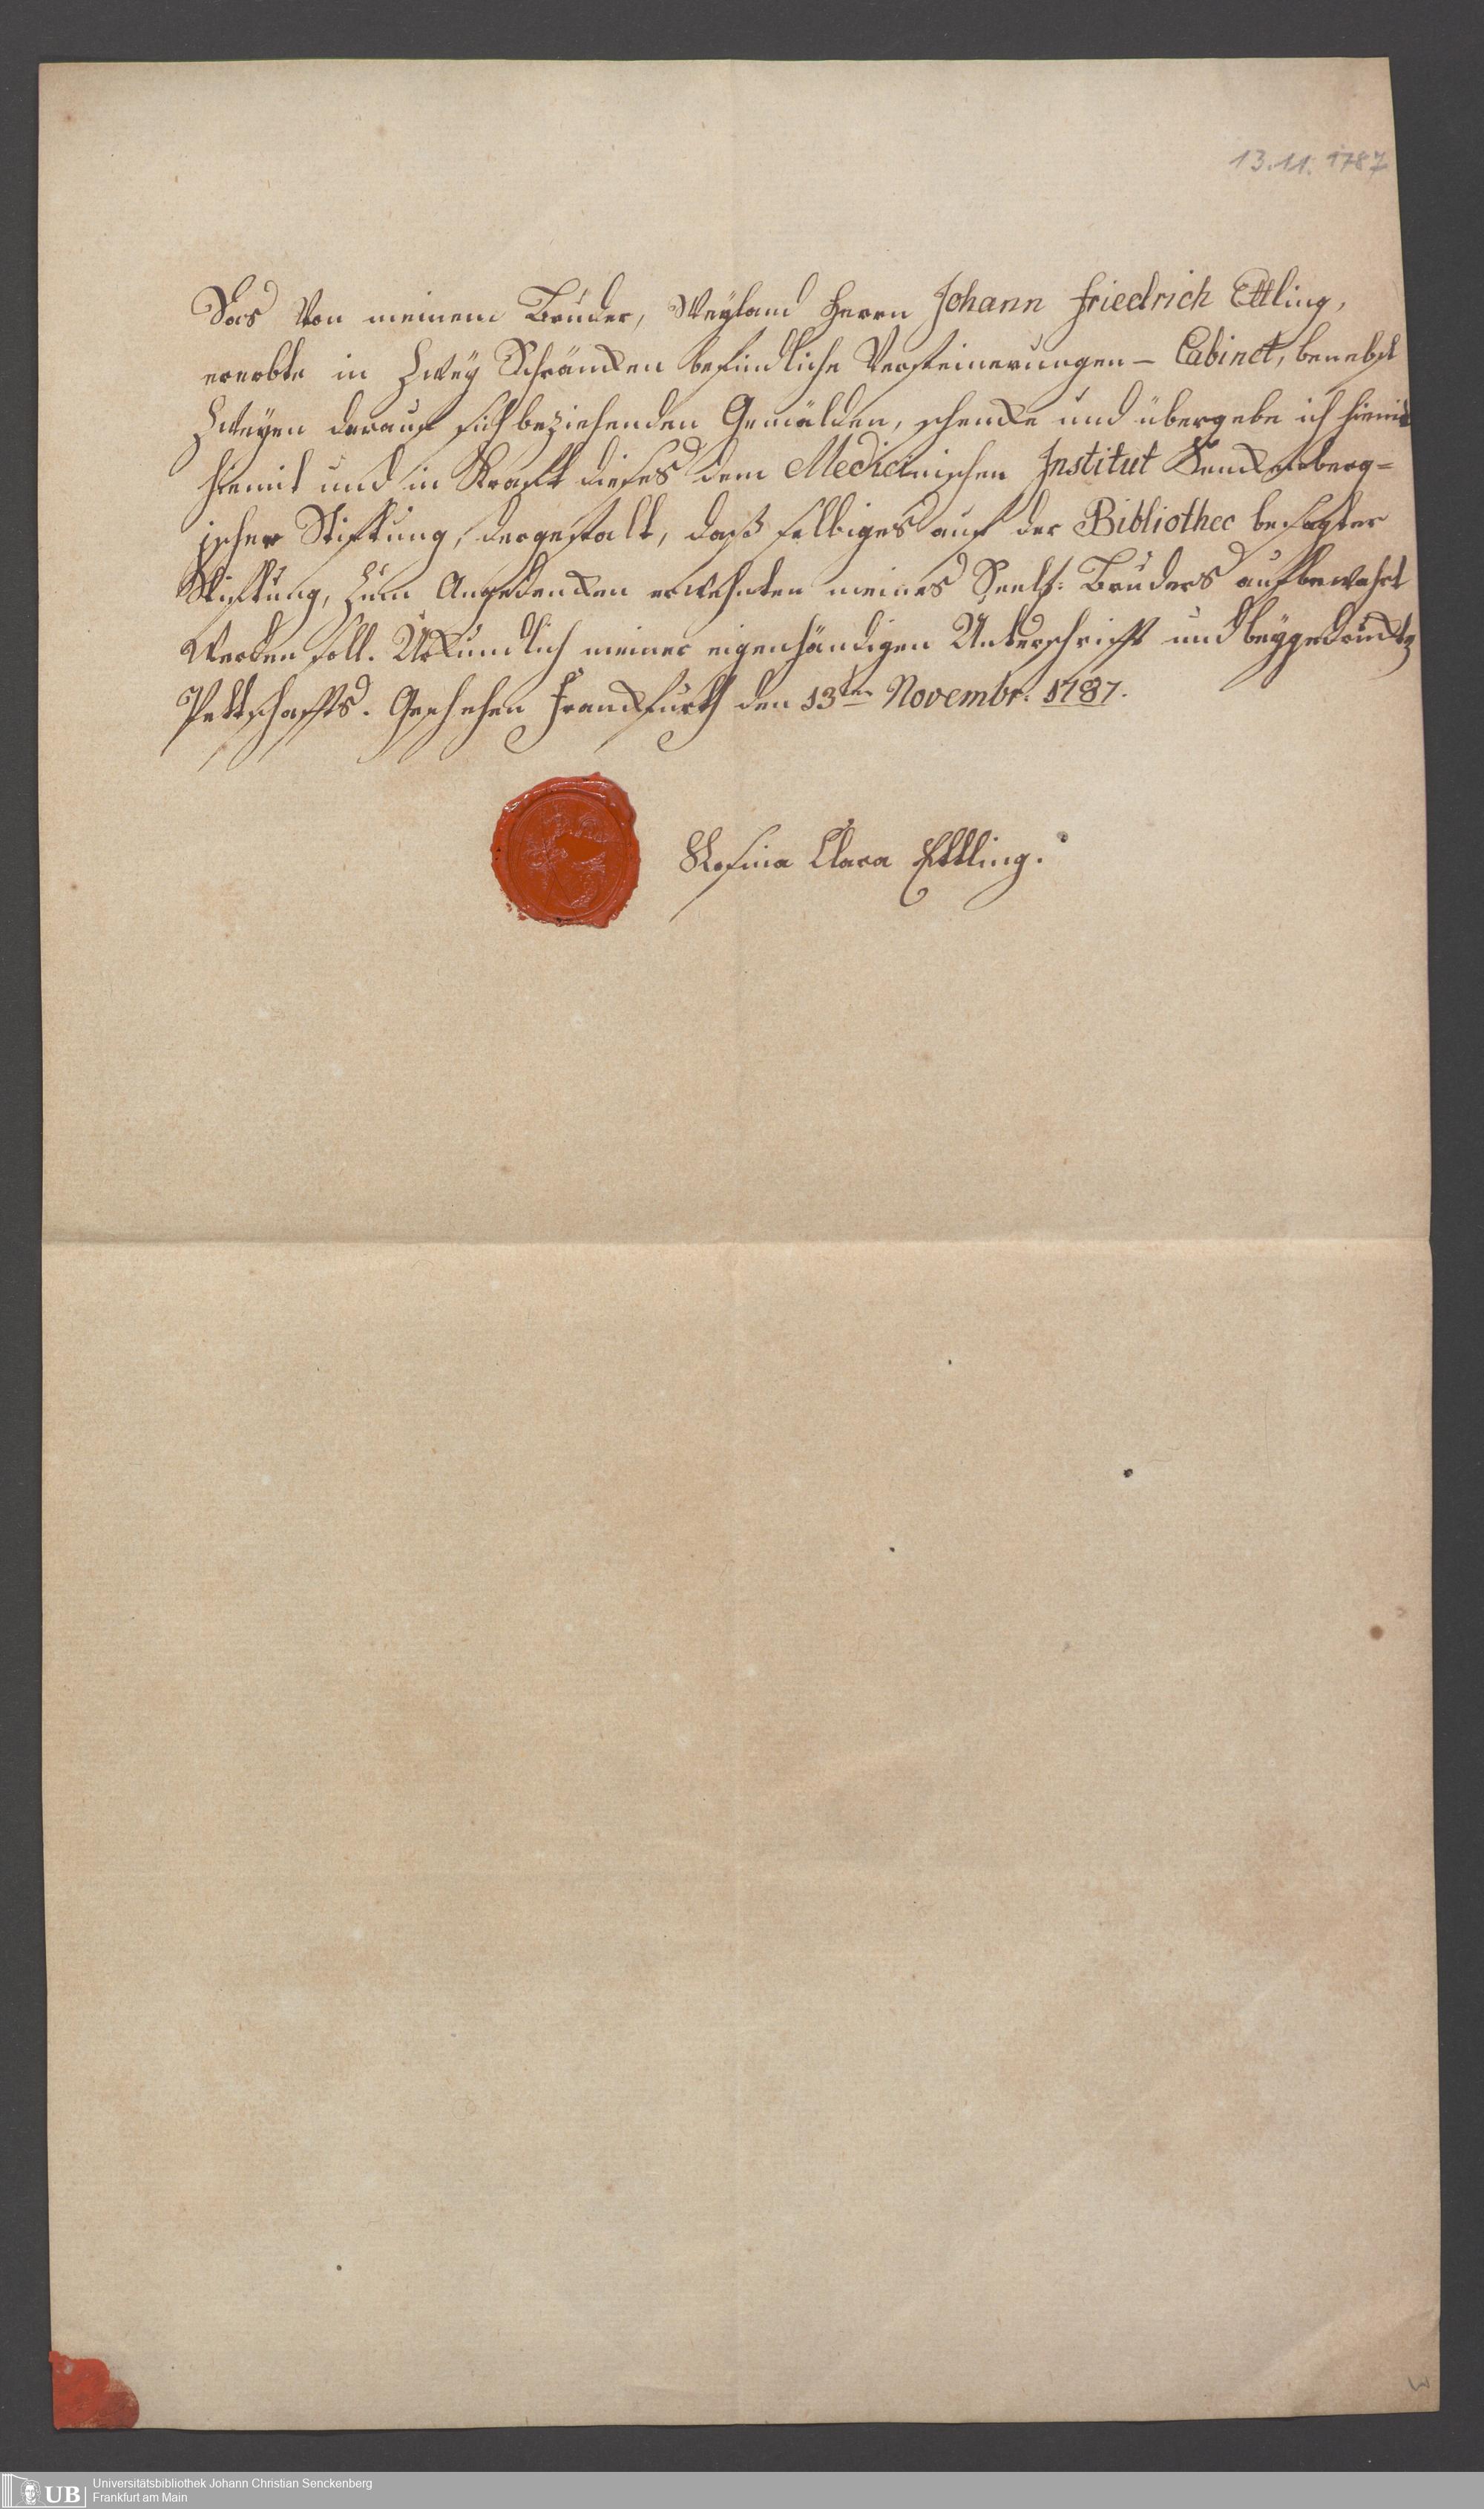 13.11.1787
Das von meinem Bruder, Weyland Herrn Johann Friedrich Ettling,
ererbte in Zwey Schräncken befindliche Versteinerungen - Cabinet, benebst
Zweyen darauf sich beziehenden Gemälden, schencke und übergebe ich hiemit
hiemit und in Krafft dieses dem Medicinischen Institut Senckenberg=
ischer Stiftung, dergestalt, daß selbiges auf der Bibliothec besagter
Stiftung, zum Angedencken erwehnten meines Seel: Bruders aufbewahrt
werden soll. Urkundlich meiner eigenhändigen Unterschrifft und beygedruckten
Pettschaffts. Geschehen Franckfurth den 13ten Novembr. 1787.
Rosina Clara Ettling.
UB
Universitätsbibliothek Johann Christian Senckenberg
Frankfurt am Main